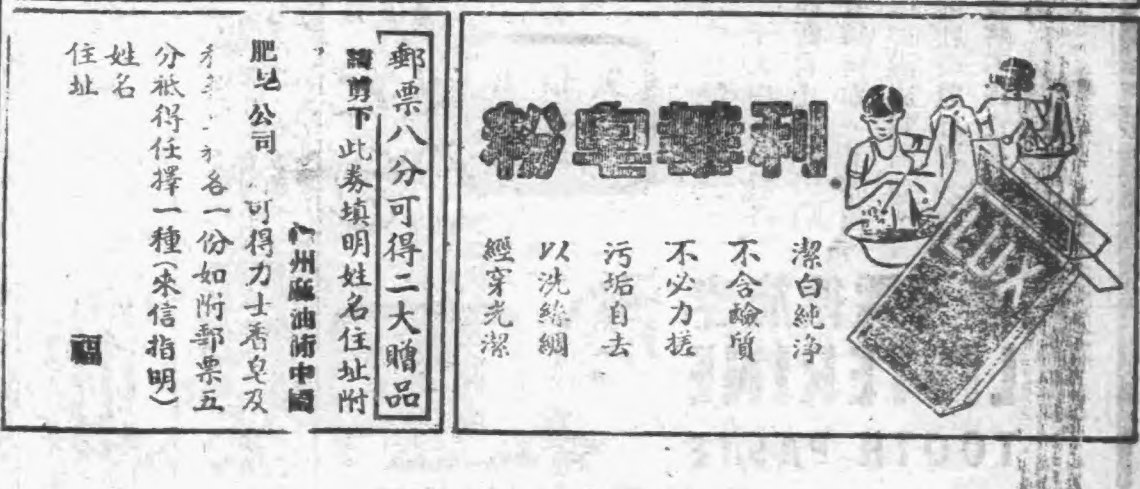 利華皂粉
LUX
潔白純淨
不含鹼質
不必力搓
污垢自去
以洗絲綢
經穿光潔
郵票八分可得二大贈品
請剪下此券填明姓名住址附
州 油 中國
肥皂公司 可得力士香皂及
各一份如附郵票五
分祗得任擇一種(來信指明)
姓名
住址
福